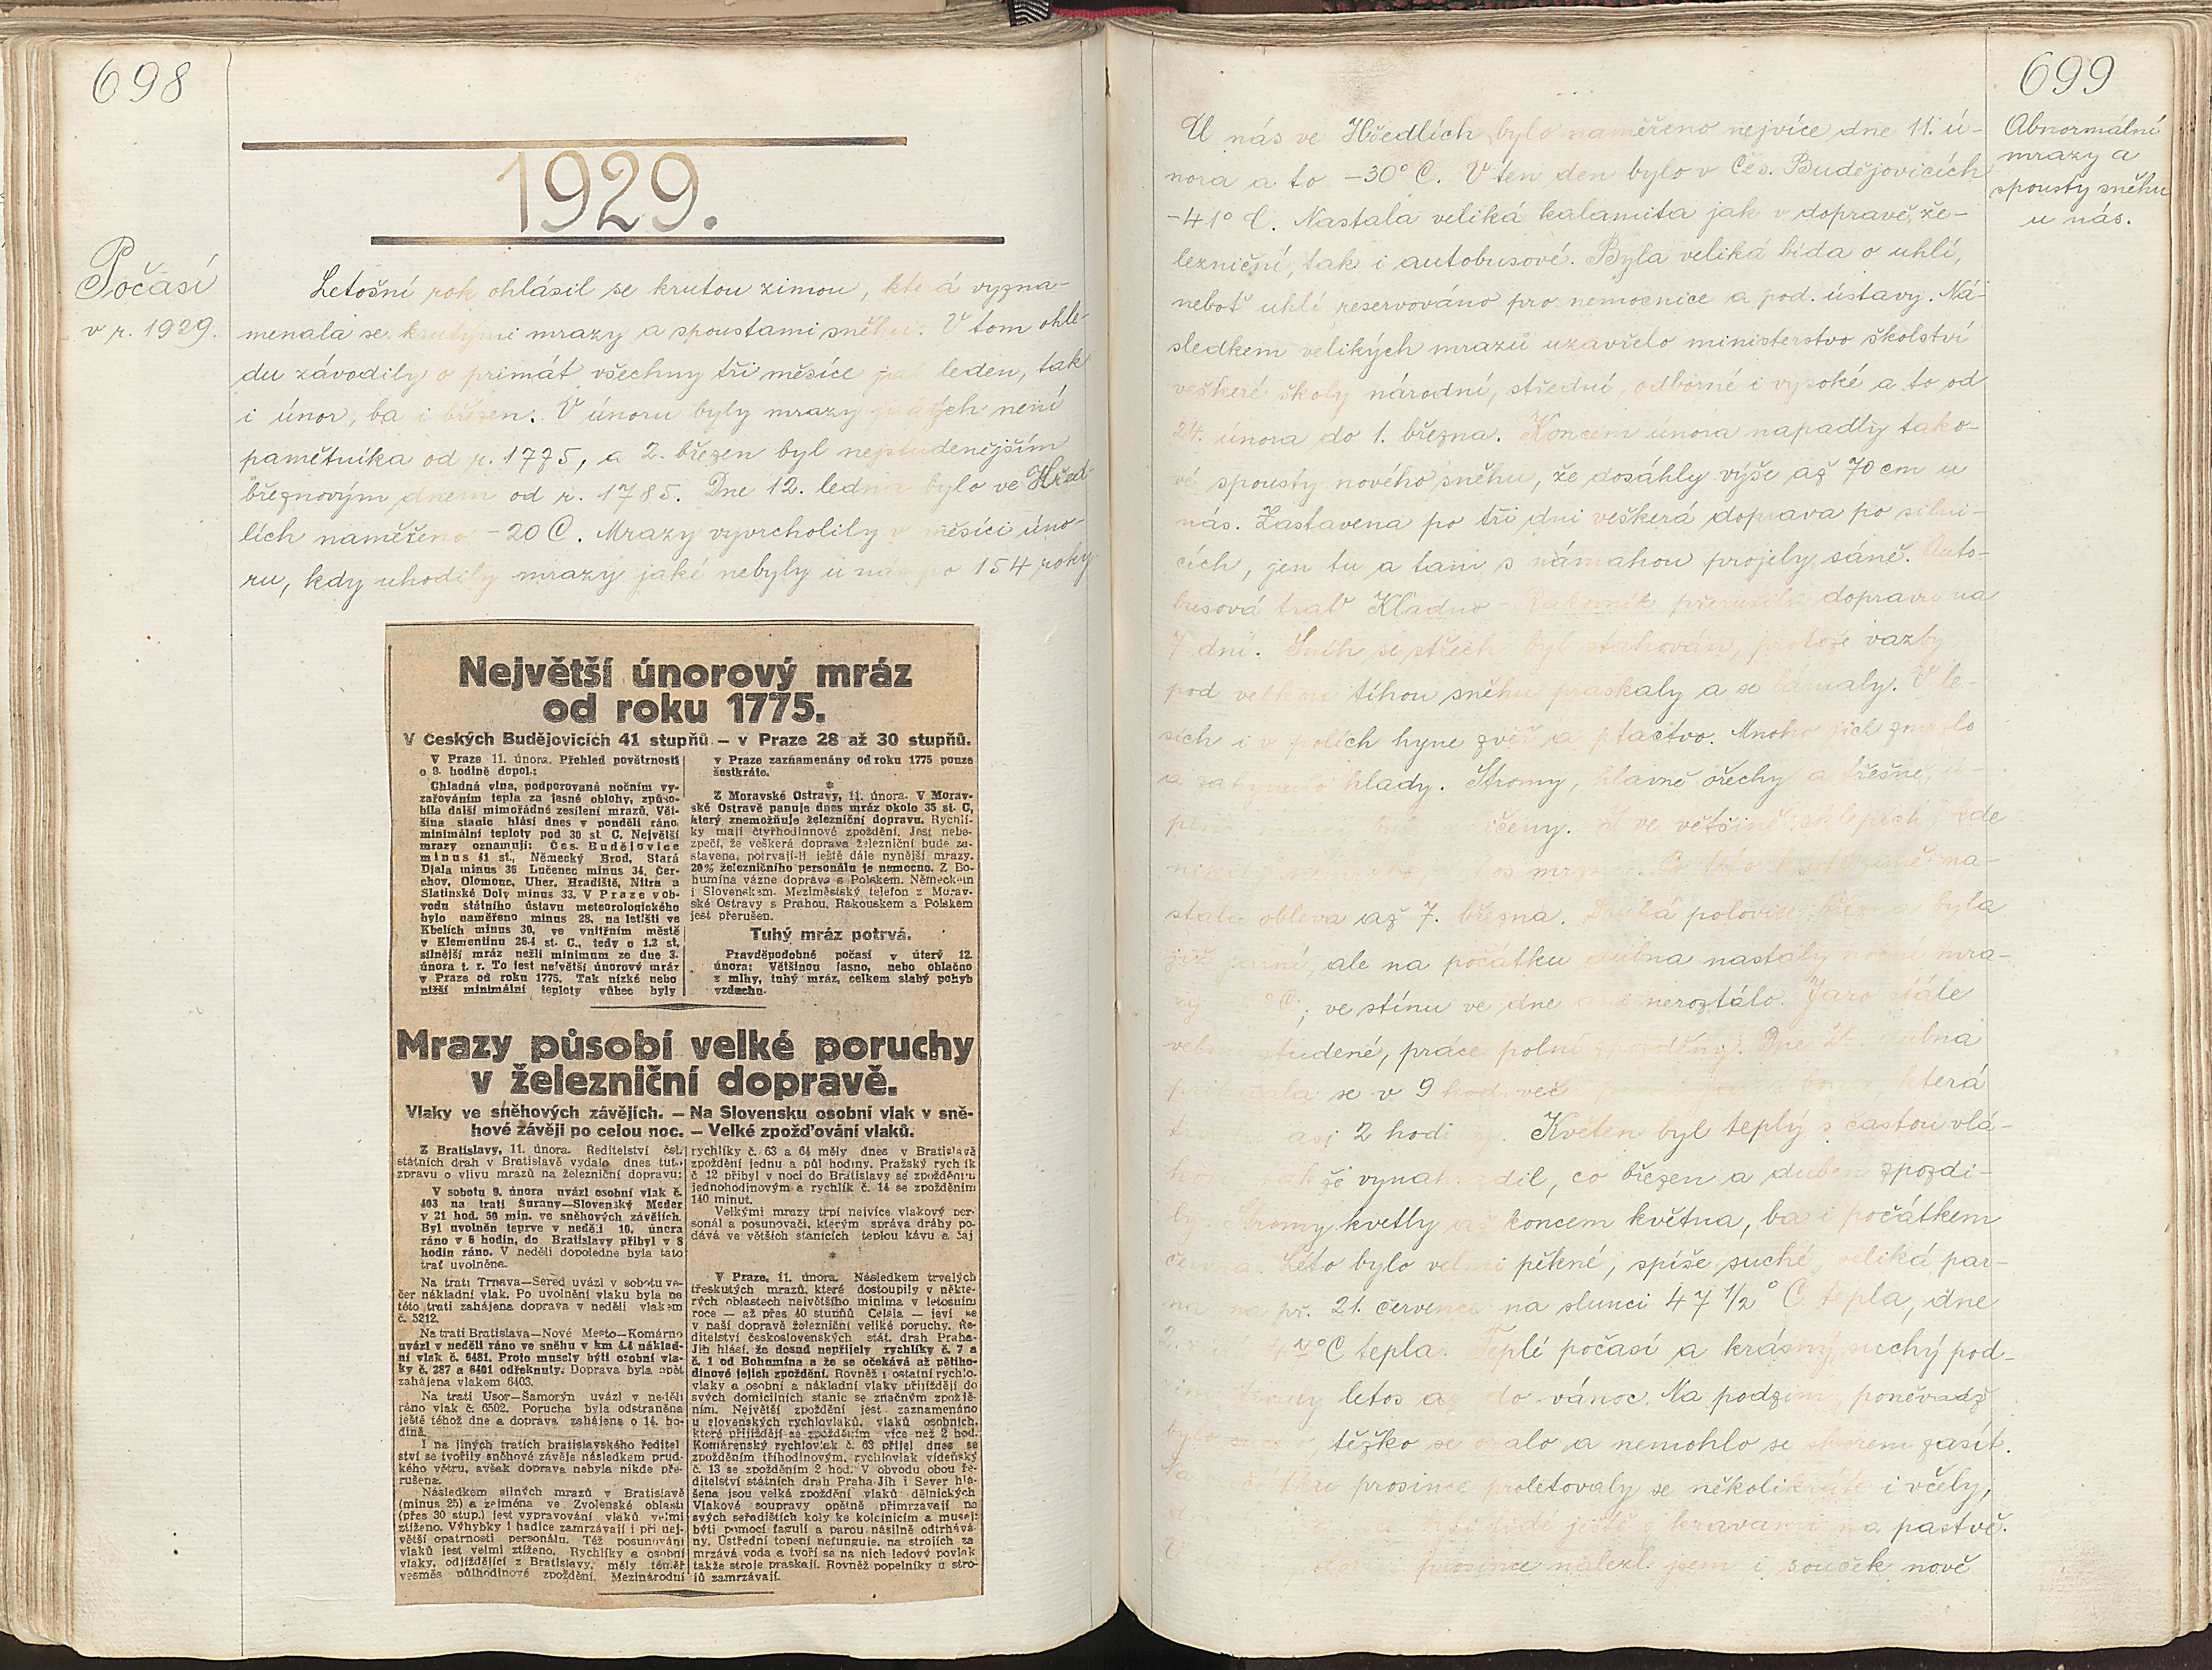 698
1929.
Počasí
v r. 1929.
Letošní rok ohlásil se krutou zimou, která vyzna-
menala se krutými mrazy a spoustami sněhu. V tom ohle-
du závodily o primát všechny tři měsíce jak leden, tak
i únor, ba i březen. V únoru byly mrazy jakých není
pamětníka od r. 1775, a 2. březen byl nejstudenějším
březnovým dnem od r. 1785. Dne 12. ledna bylo ve Hřed-
lích naměřeno -20 C. Mrazy vyvrcholily v měsíci úno-
ru, kdy uhodily mrazy jaké nebyly u nás po 154 roky.
Největší únorový mráz
od roku 1775.
V Českých Budějovicích 41 stupňů. — v Praze 28 až 30 stupňů.
V Praze 11. února. Přehled povětrnosti
o 9. hodině dopol.:
Chladná vlna, podporovaná nočním vy-
zařováním tepla za jasné oblohy, způso-
bila další mimořádné zesílení mrazů. Vět-
šina stanic hlásí dnes v pondělí ráno
minimální teploty pod 30 st. C. Největší
mrazy oznamují: Čes. Budějovice
minus 41 st., Německý Brod, Stará
Ďala minus 36 Lučenec minus 34, Čer-
chov, Olomouc, Uher. Hradiště, Nitra a
Slatinské Doly minus 33. V Praze v ob-
vodu státního ústavu meteorologického
bylo naměřeno minus 28, na letišti ve
Kbelích minus 30, ve vnitřním městě
v Klementinu 26.4 st. C., tedy o 1.2 st.
silnější mráz nežli minimum ze dne 3.
února t. r. To jest největší únorový mráz
v Praze od roku 1775. Tak nízké nebo
nižší minimální teploty vůbec byly
v Praze zaznamenány od roku 1775 pouze
šestkráte.
*
Z Moravské Ostravy, 11. února. V Morav-
ské Ostravě panuje dnes mráz okolo 35 st. C,
který znemožňuje železniční dopravu. Rychlí-
ky mají čtyřhodinnové zpoždění. Jest nebe-
zpečí, že veškerá doprava železniční bude za-
stavena, potrvají-li ještě dále nynější mrazy.
20% železničního personálu je nemocno. Z Bo-
humína vázne doprava s Polskem, Německem
i Slovenskem. Meziměstský telefon z Morav-
ské Ostravy s Prahou, Rakouskem a Polskem
jest přerušen.
Tuhý mráz potrvá.
Pravděpodobné počasí v úterý 12.
února: Většinou jasno, nebo oblačno
z mlhy, tuhý mráz, celkem slabý pohyb
vzduchu.
Mrazy působí velké poruchy
v železniční dopravě.
Vlaky ve sněhových závějích. — Na Slovensku osobní vlak v sně-
hové závěji po celou noc. — Velké zpožďování vlaků.
Z Bratislavy, 11. února. Ředitelství čsl.
státních drah v Bratislavě vydalo dnes tuto
zprávu o vlivu mrazů na železniční dopravu:
V sobotu 9. února uvázl osobní vlak č.
403 na trati Šurany—Slovenský Meder
v 21 hod. 50 min. ve sněhových závějích.
Byl uvolněn teprve v neděli 10. února
ráno v 6 hodin, do Bratislavy přibyl v 8
hodin ráno. V neděli dopoledne byla tato
trať uvolněna.
Na trati Trnava—Sereď uvázl v sobotu ve-
čer nákladní vlak. Po uvolnění vlaku byla na
této trati zahájena doprava v neděli vlakem
č. 5212.
Na trati Bratislava—Nové Mesto—Komárno
uvázl v neděli ráno ve sněhu v km 44 náklad-
ní vlak č. 6481. Proto musely býti osobní vla-
ky č. 287 a 6401 odřeknuty. Doprava byla opět
zahájena vlakem 6403.
Na trati Usor—Šamorýn uvázl v neděli
ráno vlak č. 6502. Porucha byla odstraněna
ještě téhož dne a doprava zahájena o 14. ho-
dině.
I na jiných tratích bratislavského ředitel
ství se tvořily sněhové závěje následkem prud-
kého větru, avšak doprava nebyla nikde pře-
rušena.
Následkem silných mrazů v Bratislavě
(minus 25) a zejména ve Zvolenské oblasti
(přes 30 stup.) jest vypravování vlaků velmi
ztíženo. Výhybky i hadice zamrzávají i při nej-
větší opatrnosti personálu. Též posunování
vlaků jest velmi ztíženo. Rychlíky a osobní
vlaky, odjíždějící z Bratislavy, měly téměř
vesměs půlhodinové zpoždění. Mezinárodní
rychlíky č. 63 a 64 měly dnes v Bratislavě
zpoždění jednu a půl hodiny. Pražský rychlík
č 12 přibyl v noci do Bratislavy se zpožděním
jednohodinovým a rychlík č. 14 se zpožděním
140 minut.
Velkými mrazy trpí nejvíce vlakový per-
sonál a posunovači, kterým správa dráhy po-
dává ve větších stanicích teplou kávu a čaj
*
V Praze, 11. února. Následkem trvalých
třeskutých mrazů, které dostoupily v někte-
rých oblastech největšího minima v letošním
roce — až přes 40 stupňů Celsia — jeví se
v naší dopravě železniční veliké poruchy. Ře-
ditelství československých stát. drah Praha-
Jih hlásí, že dosud nepřijely rychlíky č. 7 a
č. 1 od Bohumína a že se očekává až pětiho-
dinové jejich zpoždění. Rovněž i ostatní rychlo-
vlaky a osobní a nákladní vlaky přijíždějí do
svých domicilních stanic se značným zpoždě-
ním. Největší zpoždění jest zaznamenáno
u slovenských rychlovlaků, vlaků osobních,
které přijíždějí se zpožděním více než 2 hod.
Komárenský rychlovlak č. 63 přijel dnes se
zpožděním tříhodinovým, rychlovlak vídeňský
č. 13 se zpožděním 2 hod. V obvodu obou ře-
ditelství státních drah Praha-Jih i Sever hlá-
šena jsou velká zpoždění vlaků dělnických
Vlakové soupravy opětně přimrzávají na
svých seřadištích koly ke kolejnicím a musejí
býti pomocí fagulí a parou násilně odtrhává-
ny. Ústřední topení nefunguje, na strojích za
mrzává voda a tvoří se na nich ledový povlak
takže stroje praskají. Rovněž popelníky u stro-
jů zamrzávají.
699
Abnormální
mrazy a
spousty sněhu
u nás.
U nás ve Hředlích bylo naměřeno nejvíce dne 11. ú-
nora a to -30° C. V ten den bylo v Čes. Budějovicích
-41° C. Nastala veliká kalamita jak v dopravě že-
lezniční, tak i autobusové. Byla veliká bída o uhlí,
neboť uhlí reservováno pro nemocnice a pod. ústavy. Ná-
sledkem velikých mrazů uzavřelo ministerstvo školství
veškeré školy národní, střední, odborné i vysoké a to od
24. února do 1. března. Koncem února napadly tako-
vé spousty nového sněhu, že dosáhly výše až 70 cm u
nás. Zastavena po tři dni veškerá doprava po silni-
cích, jen tu a tam s námahou projely sáně. Auto-
busová trať Kladno - Rakovník přerušila dopravu na
7 dní. Sníh se střech byl stahován, protože vazby
pod velkou tíhou sněhu praskaly a se lámaly. V le-
sích i v polích hyne zvěř a ptactvo. Mnoho jich zmrzlo
a zahynulo hlady. Stromy, hlavně ořechy a třešně, ú-
ničeny. I ve většině sklepích, kde
mrzlo. Po této kruté zimě na-
stala obleva až 7. března. Druhá polovice března byla
již jarní, ale na počátku dubna nastaly noční mra-
zy ° C, ve stínu ve dne ani neroztálo. Jaro stále
velmi studené, práce polní zpožděny. Dne dubna
se v 9 hod. več. bouře, která
trvala asi 2 hodiny. Květen byl teplý s častou vlá-
hou, takže vynahradil, co březen a duben zpozdi-
ly. Stromy kvetly až koncem května, ba i počátkem
června. Léto bylo velmi pěkné, spíše suché, veliká par-
na, na př. 21. července na slunci 47 1/2 ° C tepla, dne
°C tepla. Teplé počasí a krásný suchý pod-
zim letos až do vánoc. Na podzim, poněvadž
bylo těžko se oralo a nemohlo se skorem zasít.
Na počátku prosince proletovaly se několikráte i včely,
lidé ještě s kravami na pastvě.
prosince nalezl jsem i souček nově